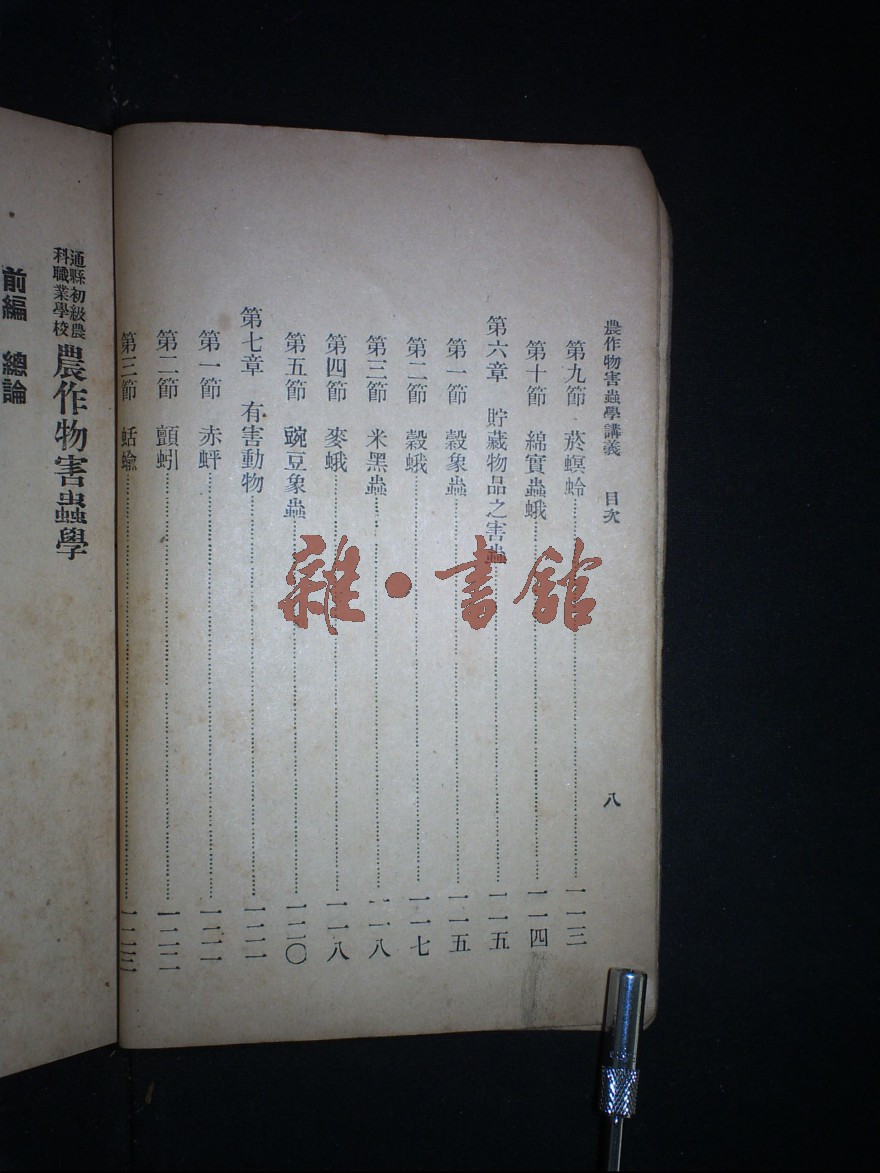 農作物害蟲學講義 目次 八
第九節 菸螟蛉 一一三
第十節 綿實蟲蛾 一一四
第六章 貯藏物品之害蟲 一一五
第一節 穀象蟲 一一五
第二節 穀蛾 一一七
第三節 米黑蟲 一一八
第四節 麥蛾 一一八
第五節 豌豆象蟲 一二〇
第七章 有害動物 一二一
第一節 赤蚲 一二一
第二節 顫蚓 一二二
第三節 蛞蝓 一二三
通縣初級農
科職業學校 農作物害蟲學
前編 總論
雜·書館